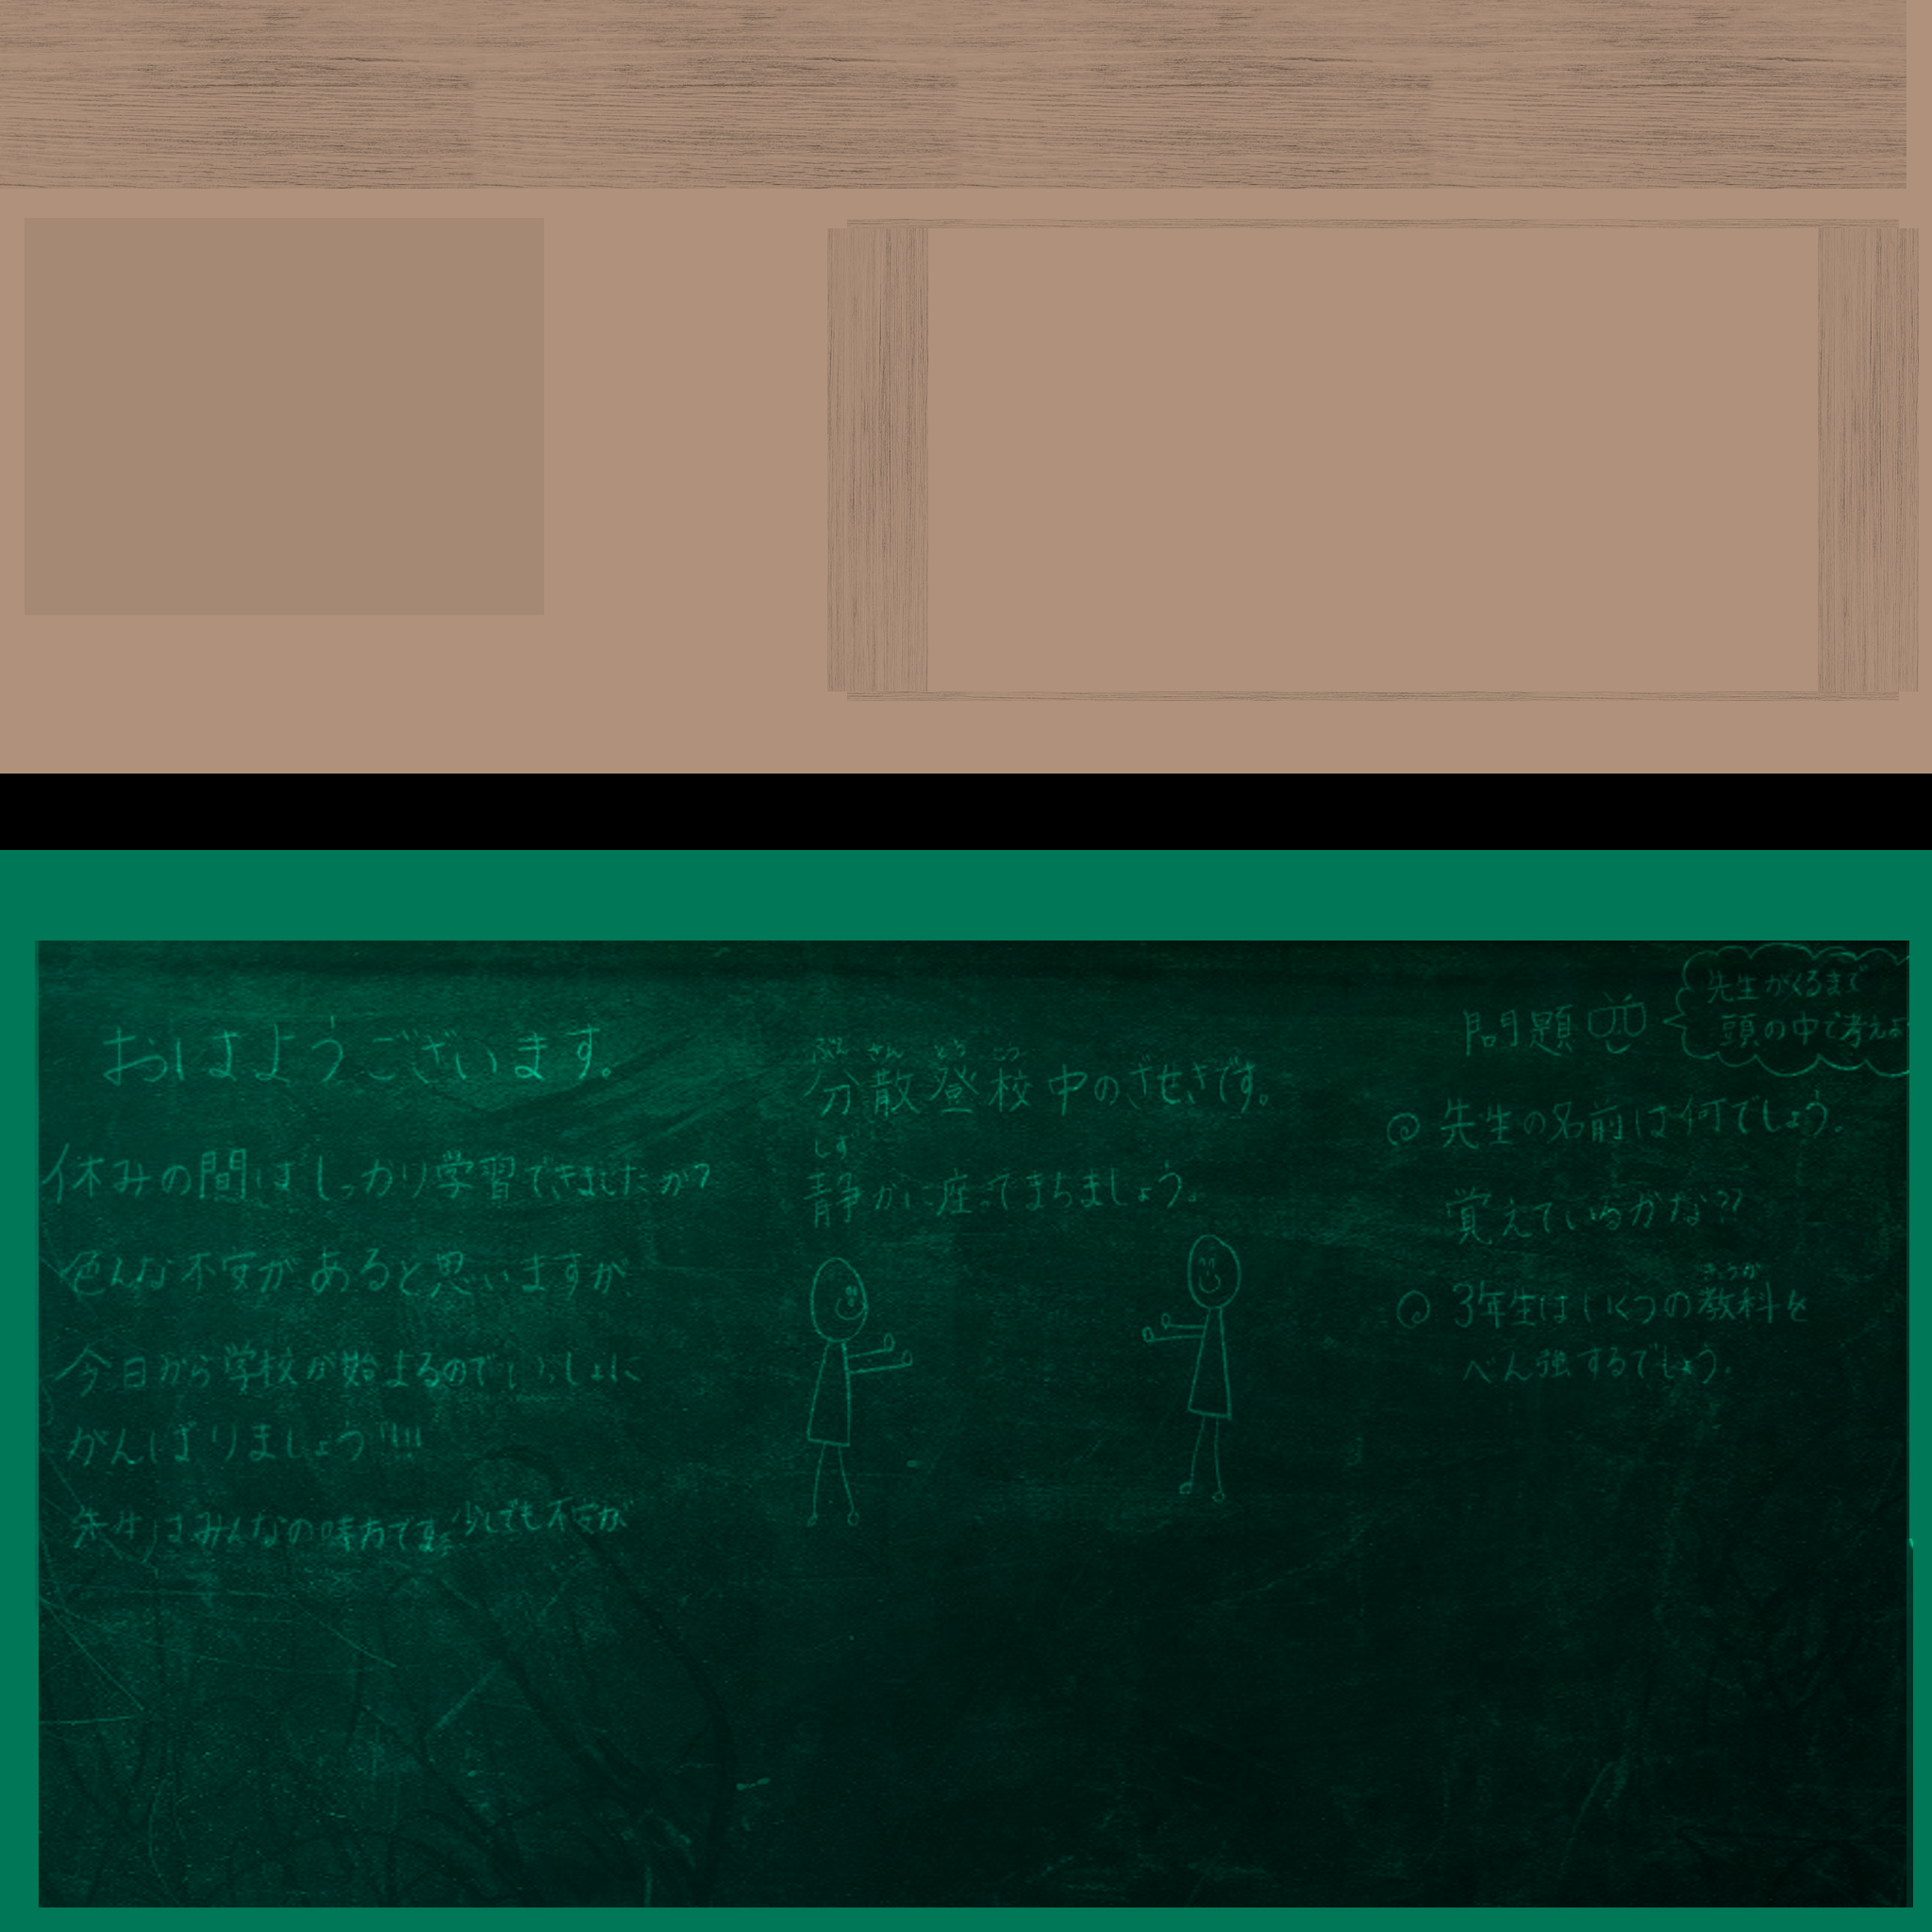 おはようございます。
休みの間はしっかり学習できましたか?
色んな不安があると思いますが
今日から学校が始まるのでいっしょに
がんばりましょう!!!!
先生はみんなの味方です。少しでも不安が
ぶん さん とう こう
分散登校中のざせきです。
しず
静かに座ってまちましょう。
問題
先生がくるまで
頭の中で考えよ
◎ 先生の名前は何でしょう。
覚えているかな??
きょうか
◎ 3年生はいくつの教科を
べん強するでしょう。